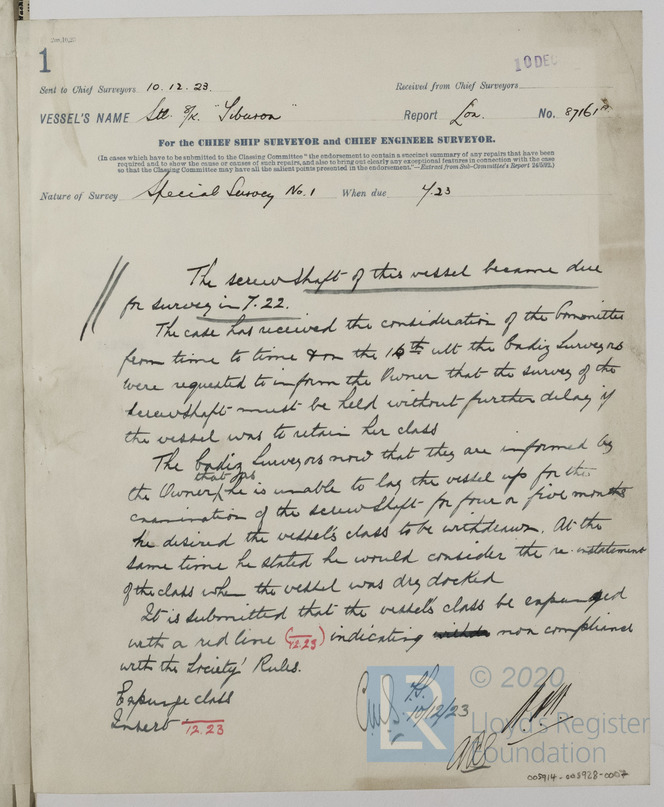 1
10 DEC
Sent to Chief Surveyors 10.12.23.
Received from Chief Surveyors
VESSEL'S NAME Stl. S/K. "Tiburon"
Report Lon. No. 87161
For the CHIEF SHIP SURVEYOR and CHIEF ENGINEER SURVEYOR.
(In cases which have to be submitted to the Classing Committee "the endorsement to contain a succinct summary of any repairs that have been
required and to show the cause or causes of such repairs, and also to bring out clearly any exceptional features in connection with the case
so that the Classing Committee may have all the salient points presented in the endorsement."—Extract from Sub-Committee's Report 24/5/92.)
Nature of Survey Special Survey No. 1 When due 4/23
The screwshaft of this vessel became due
for survey in 7.22.
The case has received the consideration of the Committee
from time to time & on the 16th ult the Cadiz Surveyors
were requested to inform the Owner that the survey of the
screwshaft must be held without further delay if
the vessel was to retain her class
The Cadiz Surveyors now that they are informed by
the Owner that as he is unable to lay the vessel up for the
examination of the screwshaft for four or five months
he desired the vessel's class to be withdrawn. At the
same time he stated he would consider the re-instatement
of the class when the vessel was dry docked
It is submitted that the vessel's class be expunged
with a red line (12.23) indicating non compliance
with the Society' Rules.
Expunge class
Insert 12.23
10/12/23
LR
© 2020
Lloyd's Register
Foundation
005914-005928-0007